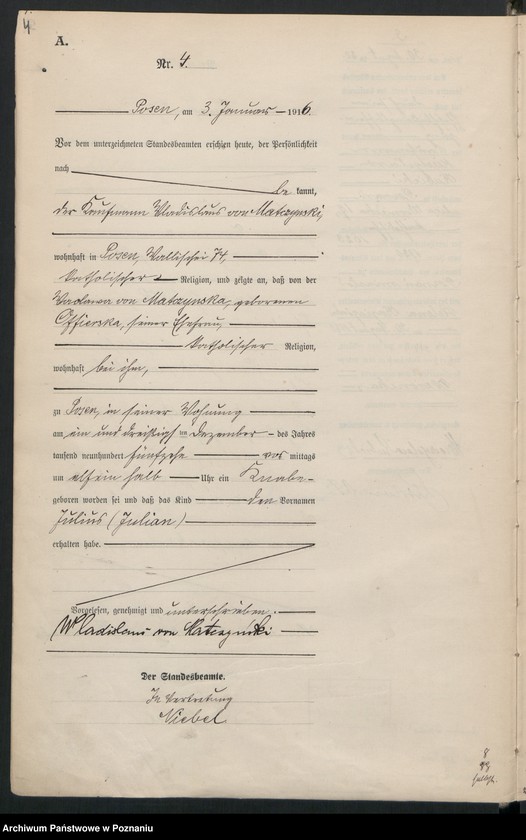 4
A.
Nr. 4.
Posen, am 3. Januar 1916.
Vor dem unterzeichneten Standesbeamten erschien heute, der Persönlichkeit
nach
be kannt,
der Kaufmann Wladislaus von Matczynski,
wohnhaft in Posen, Wallischei 74,
katholischer Religion, und zeigte an, daß von der
von Matczynska, geborenen
seiner Ehefrau,
katholischer Religion,
wohnhaft bei ihm,
zu Posen, in seiner Wohnung
am ein und dreißigsten Dezember des Jahres
tausend neunhundert fünfzehn vor mittags
um elf ein halb Uhr ein Knabe
geboren worden sei und daß das Kind den Vornamen
Julius (Julian)
erhalten habe.
Vorgelesen, genehmigt und unterschrieben.
Wladislaus von Matczyński
Der Standesbeamte.
In Vertretung
Niebel
8
Archiwum Państwowe w Poznaniu